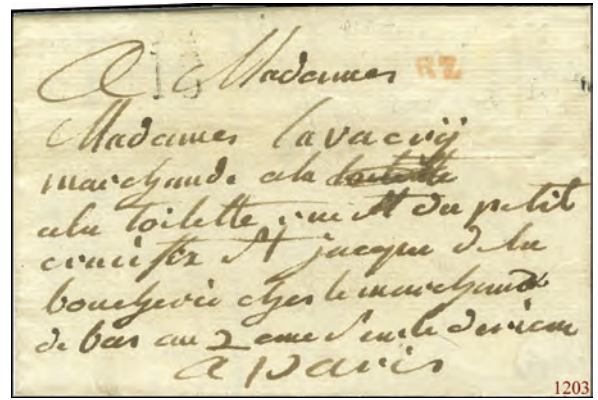 A Madames RZ
Madames Lavacry
marchande ala toilette
ala toilette rue St du petit
crucifix St jacque de la
boucherie ches le marchand
de bas au 2 eme sur le
a paris
1203